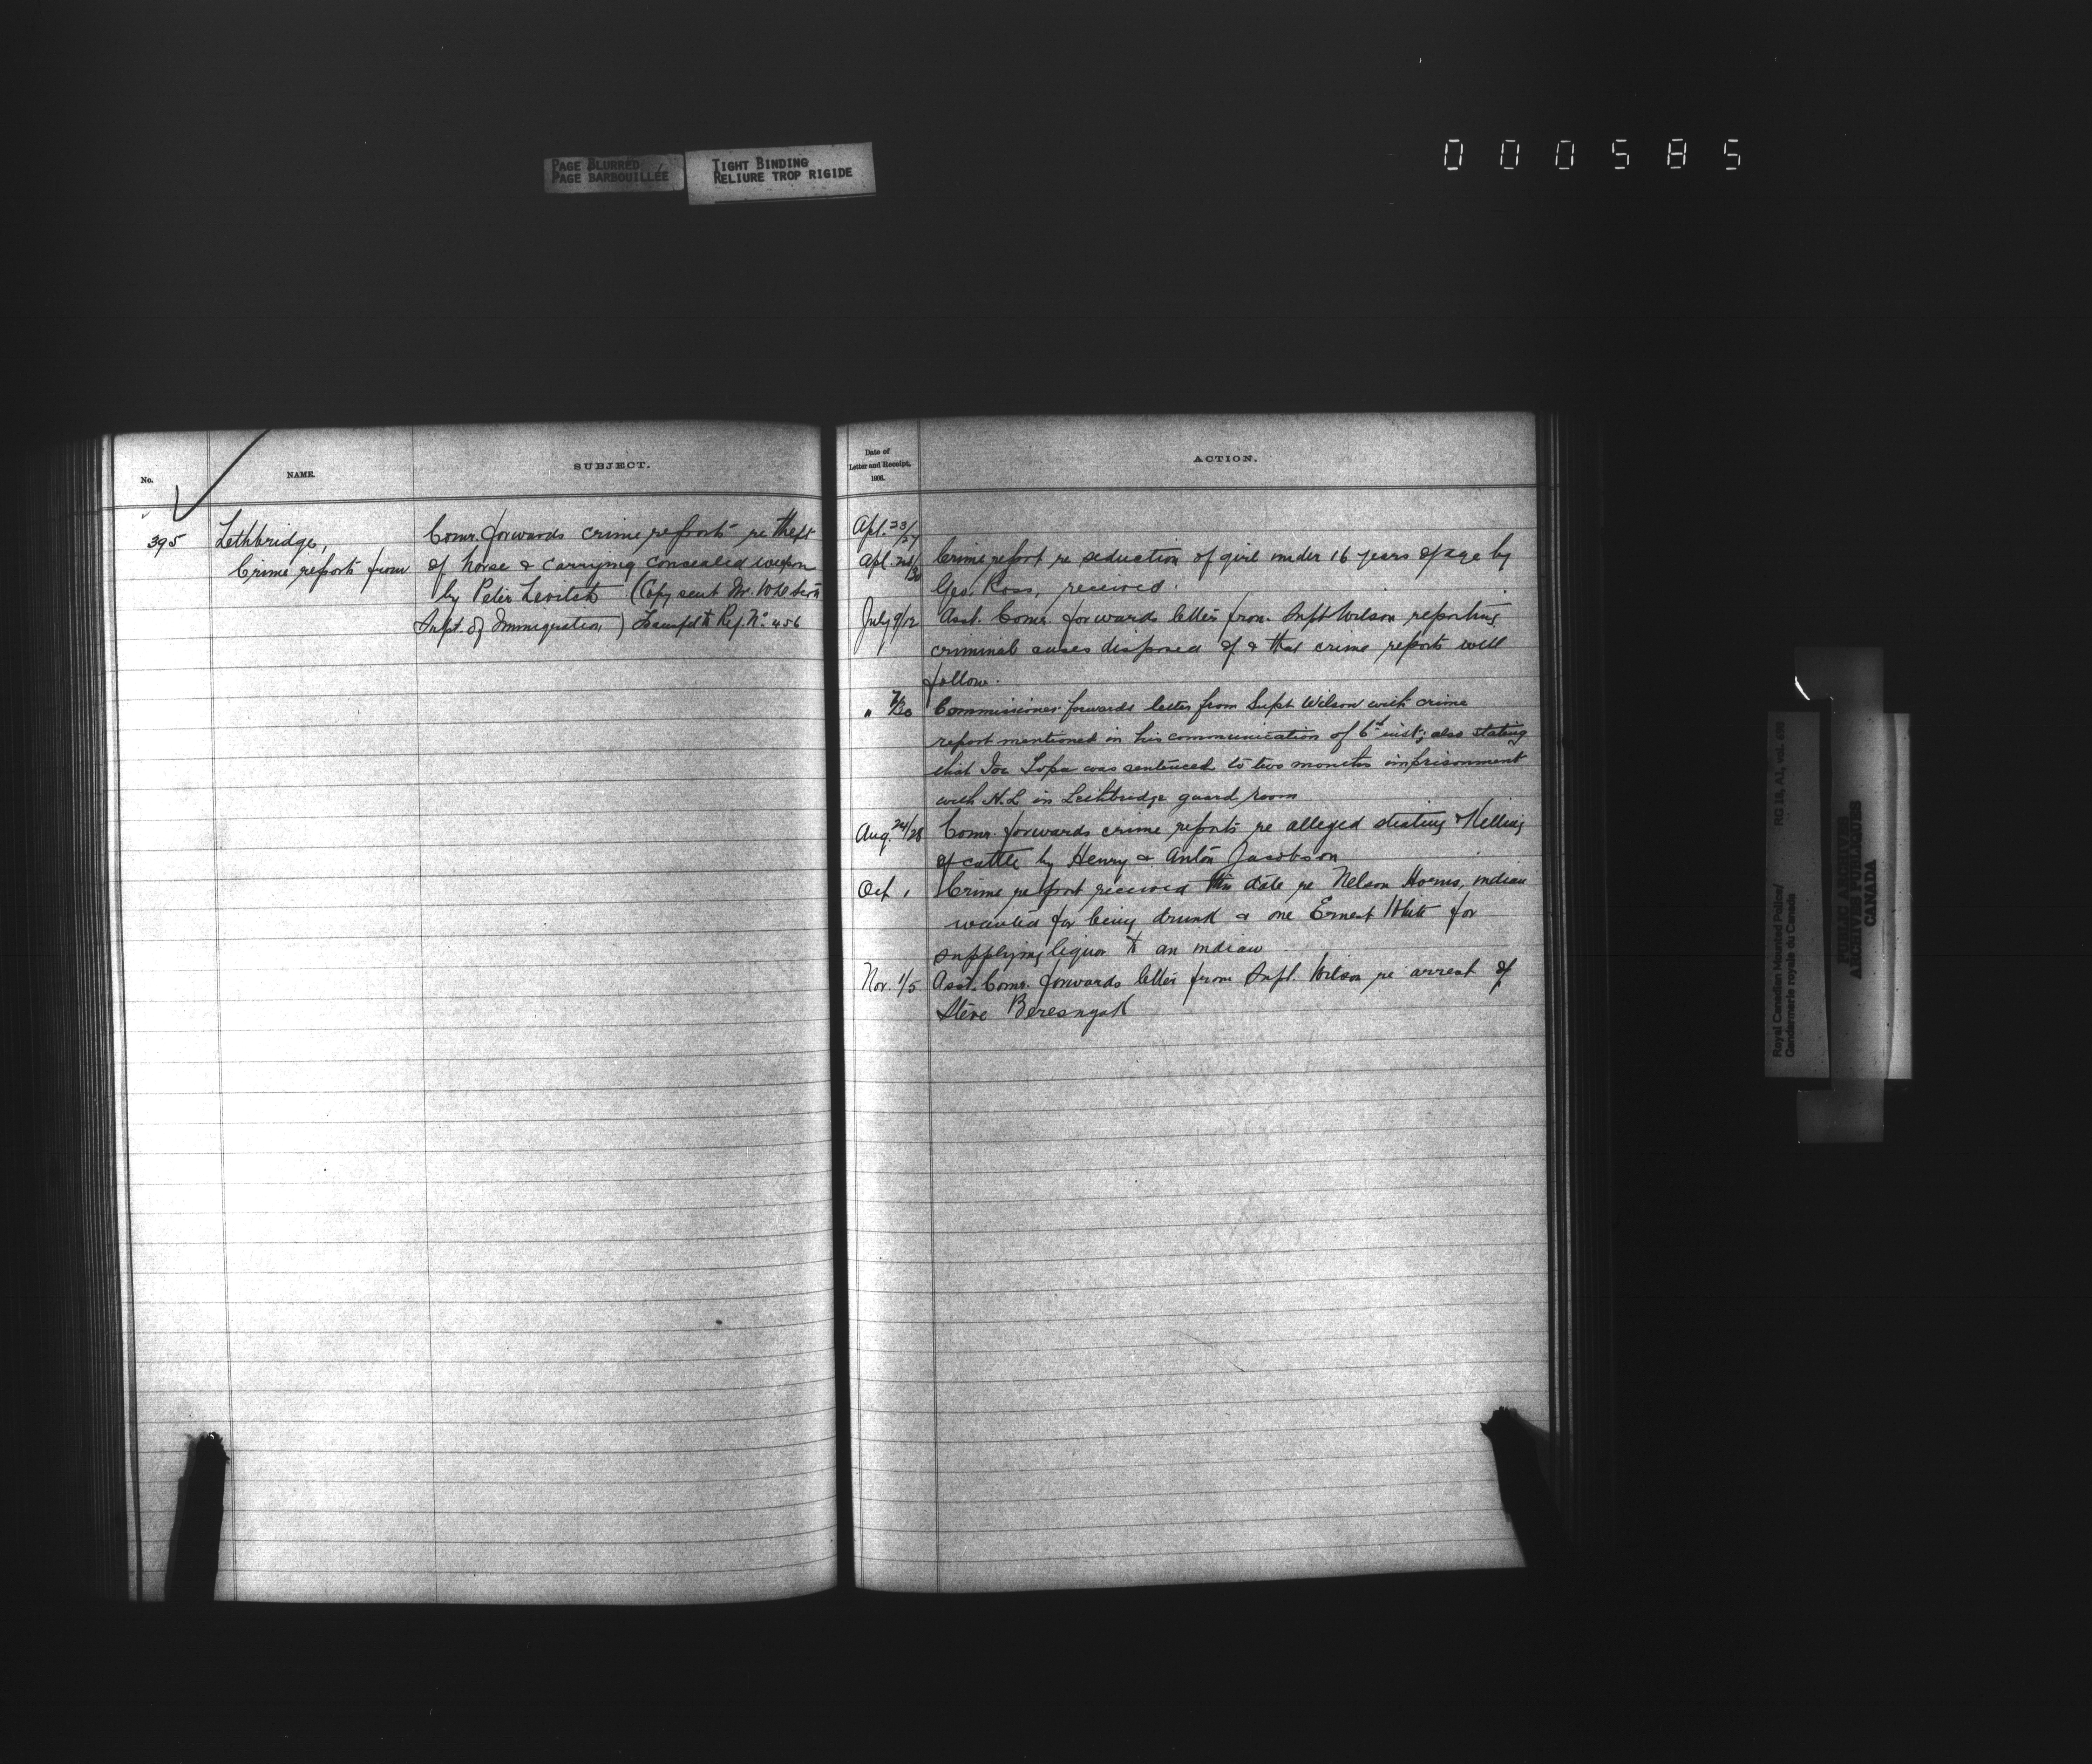 PAGE BLURRED
PAGE BARBOUILLÉE
TIGHT BINDING
RELIURE TROP RIGIDE
000585
No.
NAME.
SUBJECT.
395
Lethbridge,
Crime reports from
Comr. forwards crime reports re theft
of horse & carrying concealed weapon
by Peter Levitch (Copy sent Mr.
Supt. of Immigration) Transfd to Ref. No. 456
Date of
Letter and Receipt,
1906.
ACTION.
Apl. 23/27
Apl. /30 Crime report re seduction of girl under 16 years of age by
Geo. Ross, received.
July 9/12 Asst. Comr. forwards letter from Supt Wilson reporting
criminal cases disposed of & that crime reports will
follow.
" /30 Commissioner forwards letter from Supt Wilson with crime
report mentioned in his communication of 6th inst; also stating
that Joe Lopa was sentenced to two months imprisonment
with H.L. in Lethbridge guard room
Aug. 24/28 Comr. forwards crime reports re alleged stealing & killing
of cattle by Henry & Anton Jacobson
Oct 1 Crime report received this date re Nelson indian
wanted for being drunk & one Ernest White for
supplying liquor to an indian
Nov. 1/5 Asst. Comr. forwards letter from Supt. Wilson re arrest of
Steve Beresnyak
Royal Canadian Mounted Police/
Gendarmerie royale du Canada
RG 18, A1, vol.
PUBLIC ARCHIVES
ARCHIVES PUBLIQUES
CANADA